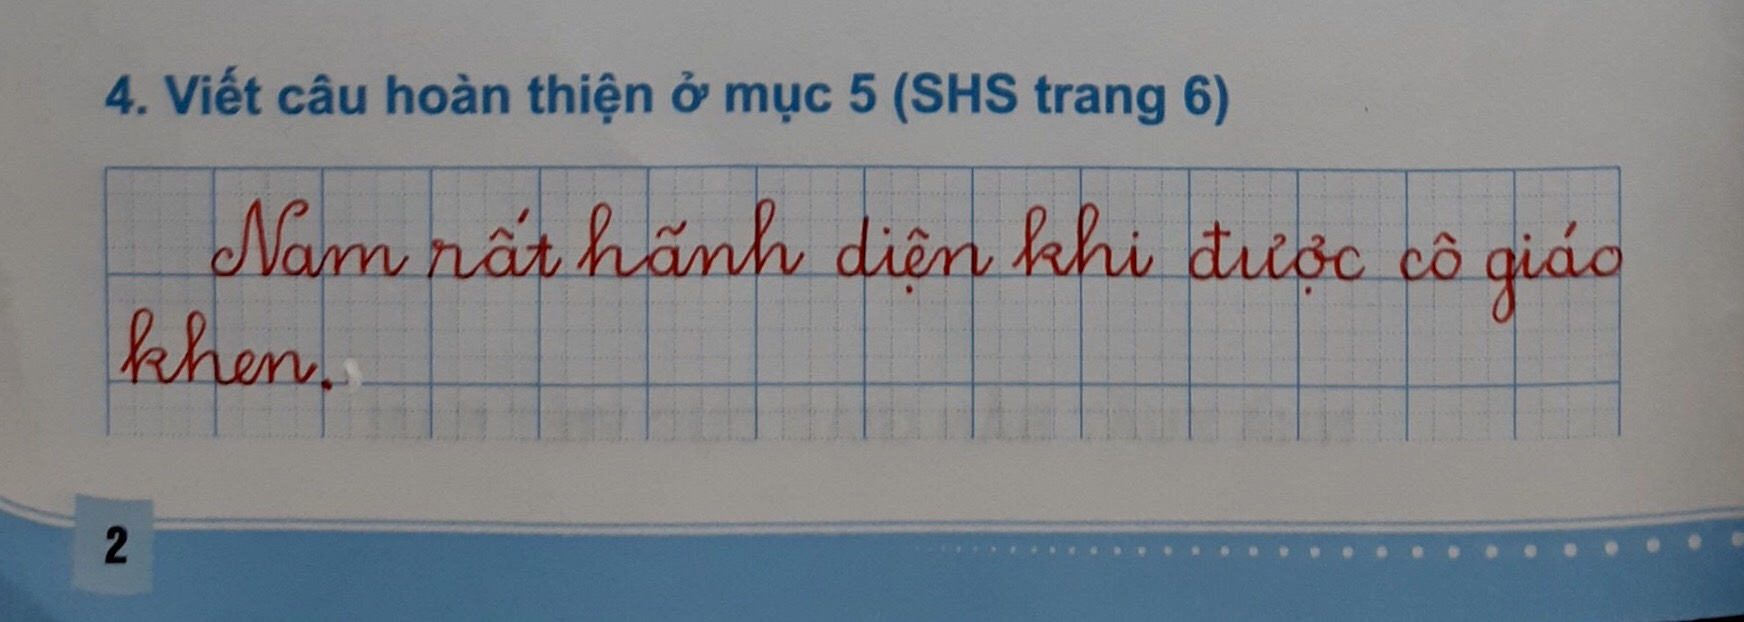 4. Viết câu hoàn thiện ở mục 5 (SHS trang 6)
Nam rất hãnh diện khi được cô giáo
khen.
2